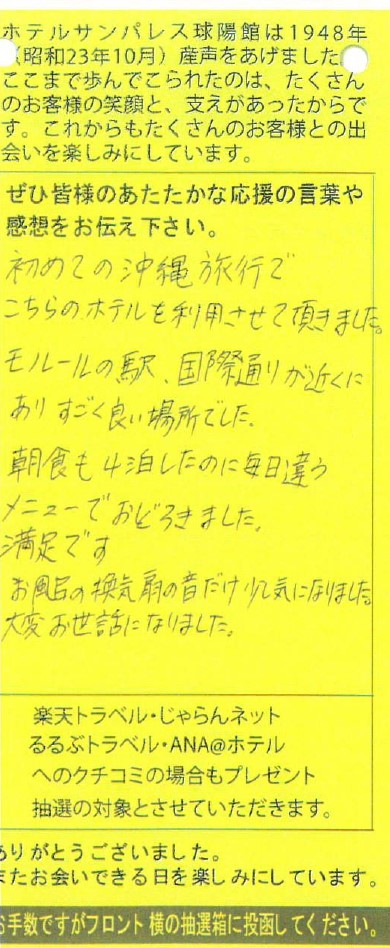 ホテルサンパレス球陽館は1948年
（昭和23年10月）産声をあげました
ここまで歩んでこられたのは、たくさん
のお客様の笑顔と、支えがあったからで
す。これからもたくさんのお客様との出
会いを楽しみにしています。
ぜひ皆様のあたたかな応援の言葉や
感想をお伝え下さい。
初めての沖縄旅行で
こちらのホテルを利用させて頂きました。
モルールの駅、国際通りが近くに
ありすごく良い場所でした。
朝食も4泊したのに毎日違う
メニューでおどろきました。
満足です
お風呂の換気扇の音だけ少し気になりました。
大変お世話になりました。
楽天トラベル・じゃらんネット
るるぶトラベル・ANA@ホテル
へのクチコミの場合もプレゼント
抽選の対象とさせていただきます。
ありがとうございました。
またお会いできる日を楽しみにしています。
お手数ですがフロント横の抽選箱に投函してください。